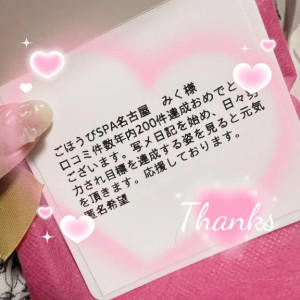 ごほうびSPA名古屋　みく様
口コミ件数年内200件達成おめでと
ございます。写メ日記を始め、日々
力され目標を達成する姿を見ると元気
を頂きます。応援しております。
匿名希望
Thanks